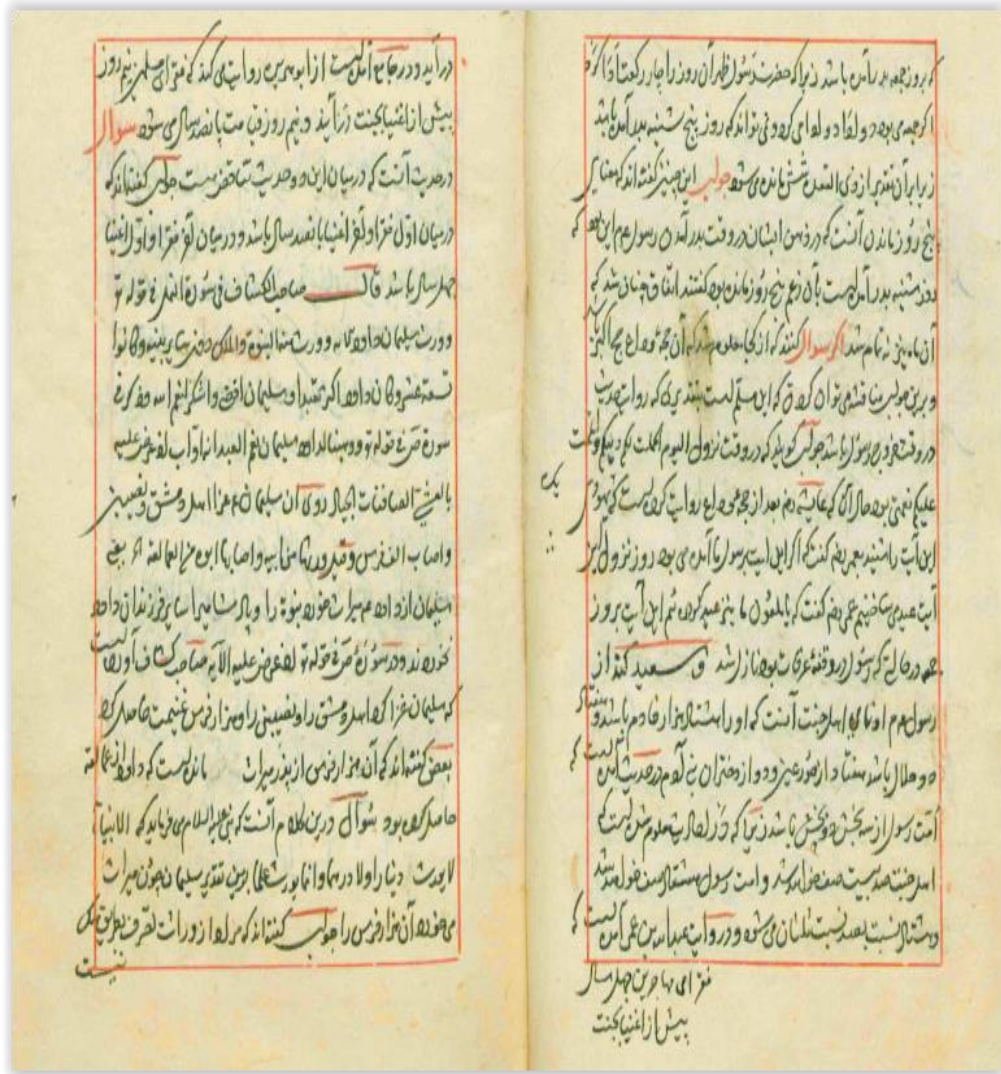 که بروز جمعه بدر آمده باشد زیرا که حضرت رسول ظهر آن روز را چار رکعت
اگر جمعه می بود دو ادا می کرد و نمی تواند که روز پنج شنبه بدر آمده باشد
زیرا بر آن تقدیر از ذی القعده شش مانده می شود جواب این چنین گفته اند که معنای
پنج روز ماندن آنست که در ذهن ایشان در وقت بدر آمدن رسول عم این بود که
روز شنبه بدر آمده است بآن زعم پنج روز مانده بود گفتند اتفاق چنان شد که
آن ماه نیز تمام شد اگر سؤال کنند که از کجا معلوم شد که آن حجة وداع حج اکبر
و برین جواب مناقشه می توان کرد که این مسلم است بتقدیری که روایت حدیث
در وقت خروج رسول باشد جواب گویند که در وقت نزول الیوم اکملت لکم دینکم و اتممت
علیکم نعمتی بود حال آن که عایشه رضی بعد از حجة وداع روایت کرده است که یهودی
یک
این آیت را شنید بعمر رضی گفت که اگر این آیت بر رسول ما آمده می بود روز نزول این
آیت عیدی ساختیم عمر رضی گفت که یا ملعون ما نیز عید کرده ایم این آیت بروز
جمعه در حالی که رسول در وقفه عرفات بود نازل شد و سعید گفته از
رسول عم ادنای اهل جنت آنست که او را هشتاد هزار خادم باشد و هفتاد
دو حلال باشد هفتاد از حور عین و دو از دختران بنی آدم در حدیث آمده است که
امت رسول از سه بخش دو بخش باشد زیرا که در احادیث معلوم شده است که
اهل جنت صد بیست صف خواهد شد و امت رسول هشتاد صف خواهد شد
و هشتاد نسبت بصد بیست ثلثان می شود و در روایت عبد الله بن عمر آمده است که
فقرای مهاجرین چهل سال
پیش از اغنیا بجنت
در آید و در جامع آمده است از ابو هریره روایت می کند که فقرای مسلمین نیم روز
پیش از اغنیا بجنت در آیند و نیم روز قیامت پانصد سال می شود سؤال
در حدیث آنست که در میان این دو حدیث تناقض هست جواب گفته اند که
در میان اول فقرا و آخر اغنیا پانصد سال باشد و در میان آخر فقرا و اول اغنیا
چهل سال باشد قال صاحب الکشاف فی سورة النمل فی قوله تع
وورث سلیمان داود الآیه وورث منه النبوة والملک دون سایر بنیه وکانوا
تسعة عشر وکان داود اکثر تعبدا وسلیمان اقضی واشکر لنعم الله وذکر فی
سورة ص فی قوله تع ووهبنا لداود سلیمان نعم العبد انه اواب اذ عرض علیه
بالعشی الصافنات الجیاد روی ان سلیمان عم غزا اهل دمشق ونصیبین
واصاب الف فرس وقیل ورثها من ابیه واصابها ابوه من العمالقة یعنی
سلیمان از داود عم میراث خورد نبوة را و پادشاهی را سایر فرزندان داود
نخوردند و در سوره ص فی قوله تع اذ عرض علیه الآیه صاحب کشاف آورده است
که سلیمان غزا کرد اهل دمشق را و نصیبین را و هزار فرس غنیمت حاصل کرد
بعضی گفته اند که آن هزار فرس از پدر میراث مانده است که داود از عمالقه
حاصل کرده بود سؤال درین کلام آنست که نبی علیه السلام می فرماید که الانبیاء
لا یورث دینارا ولا درهما وانما یورث علما برین تقدیر سلیمان چون میراث
می خورد آن هزار فرس را جواب گفته اند که مراد از وراثت تصرف بطریق ملک
نیست